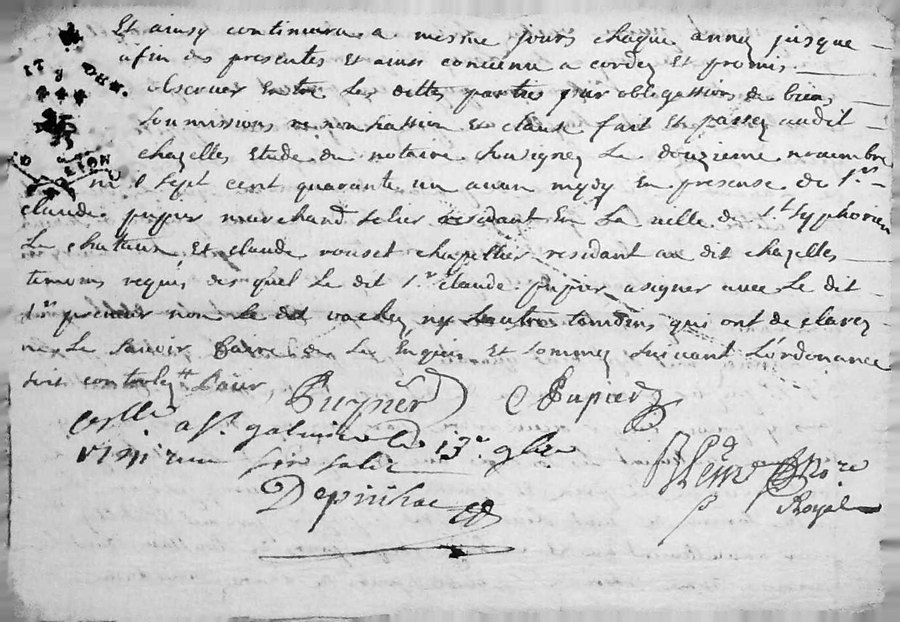 Et ainsy continuera a mesme jours chaque année jusque
afin des presentes et ainsi convenu acordez et promis
observer entre les dittes parties par obligassions de biens
soumissions renonsassion et clause fait et passez audit
chazelles Etude du notaire le douzieme novembre
mil sept cent quarante un avan mydy En presense de Sr
claude pupier marchand selier residant En la ville de St Syphorien
Le chateau et claude rouset chapellier residant au dit chazelles
temoins requis desquel Le dit Sr claude pupier a signer avec Le dit
Sr preneur non le dit vachez ny L'autre temoins qui ont declarez
ne Le savoir faire de ce Enquis et sommez suivant L'ordonance
sera controlez
Puynér C Pupier
a St galmier le 13e 9bre
1741
Depinhac
Nore
Royal